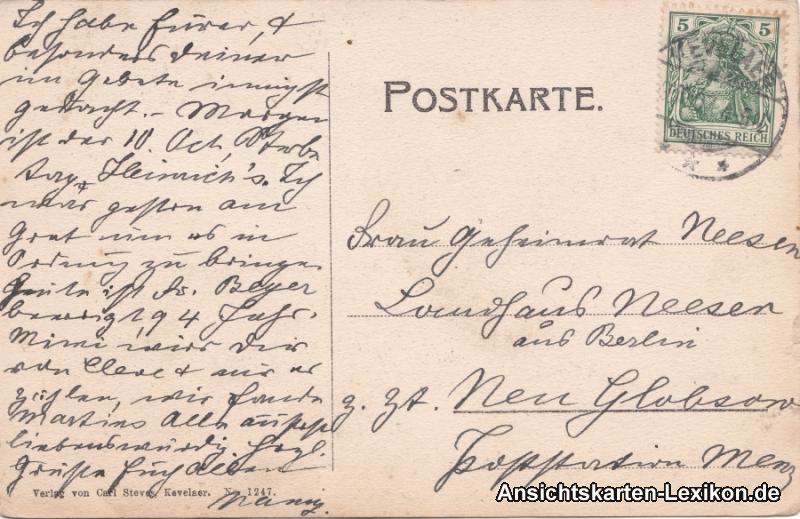 Ich habe Eurer, &
besonders Deiner
im Gebete innigst
gedacht. – Morgen
ist der 10. Oct, Sterbe
tag Heinrich's. Ich
war gestern am
Grab um es in
Ordnung zu bringen
Heute ist Fr. Beyer
beerdigt 94 Jahr.
Mimi wird Dir
von Cleve & uns er
zählen, wir fanden
Martins Alle
liebenswürdig Herzl.
Grüße Euch Allen
POSTKARTE.
5 5
DEUTSCHES REICH
KEVELAER
Frau Geheimrat Neesen
Landhaus Neesen
aus Berlin
z. Zt. Neu Globsow
Poststation Menz
Verlag von Carl Steves, Kevelaer. No. 1247.
Ansichtskarten-Lexikon.de